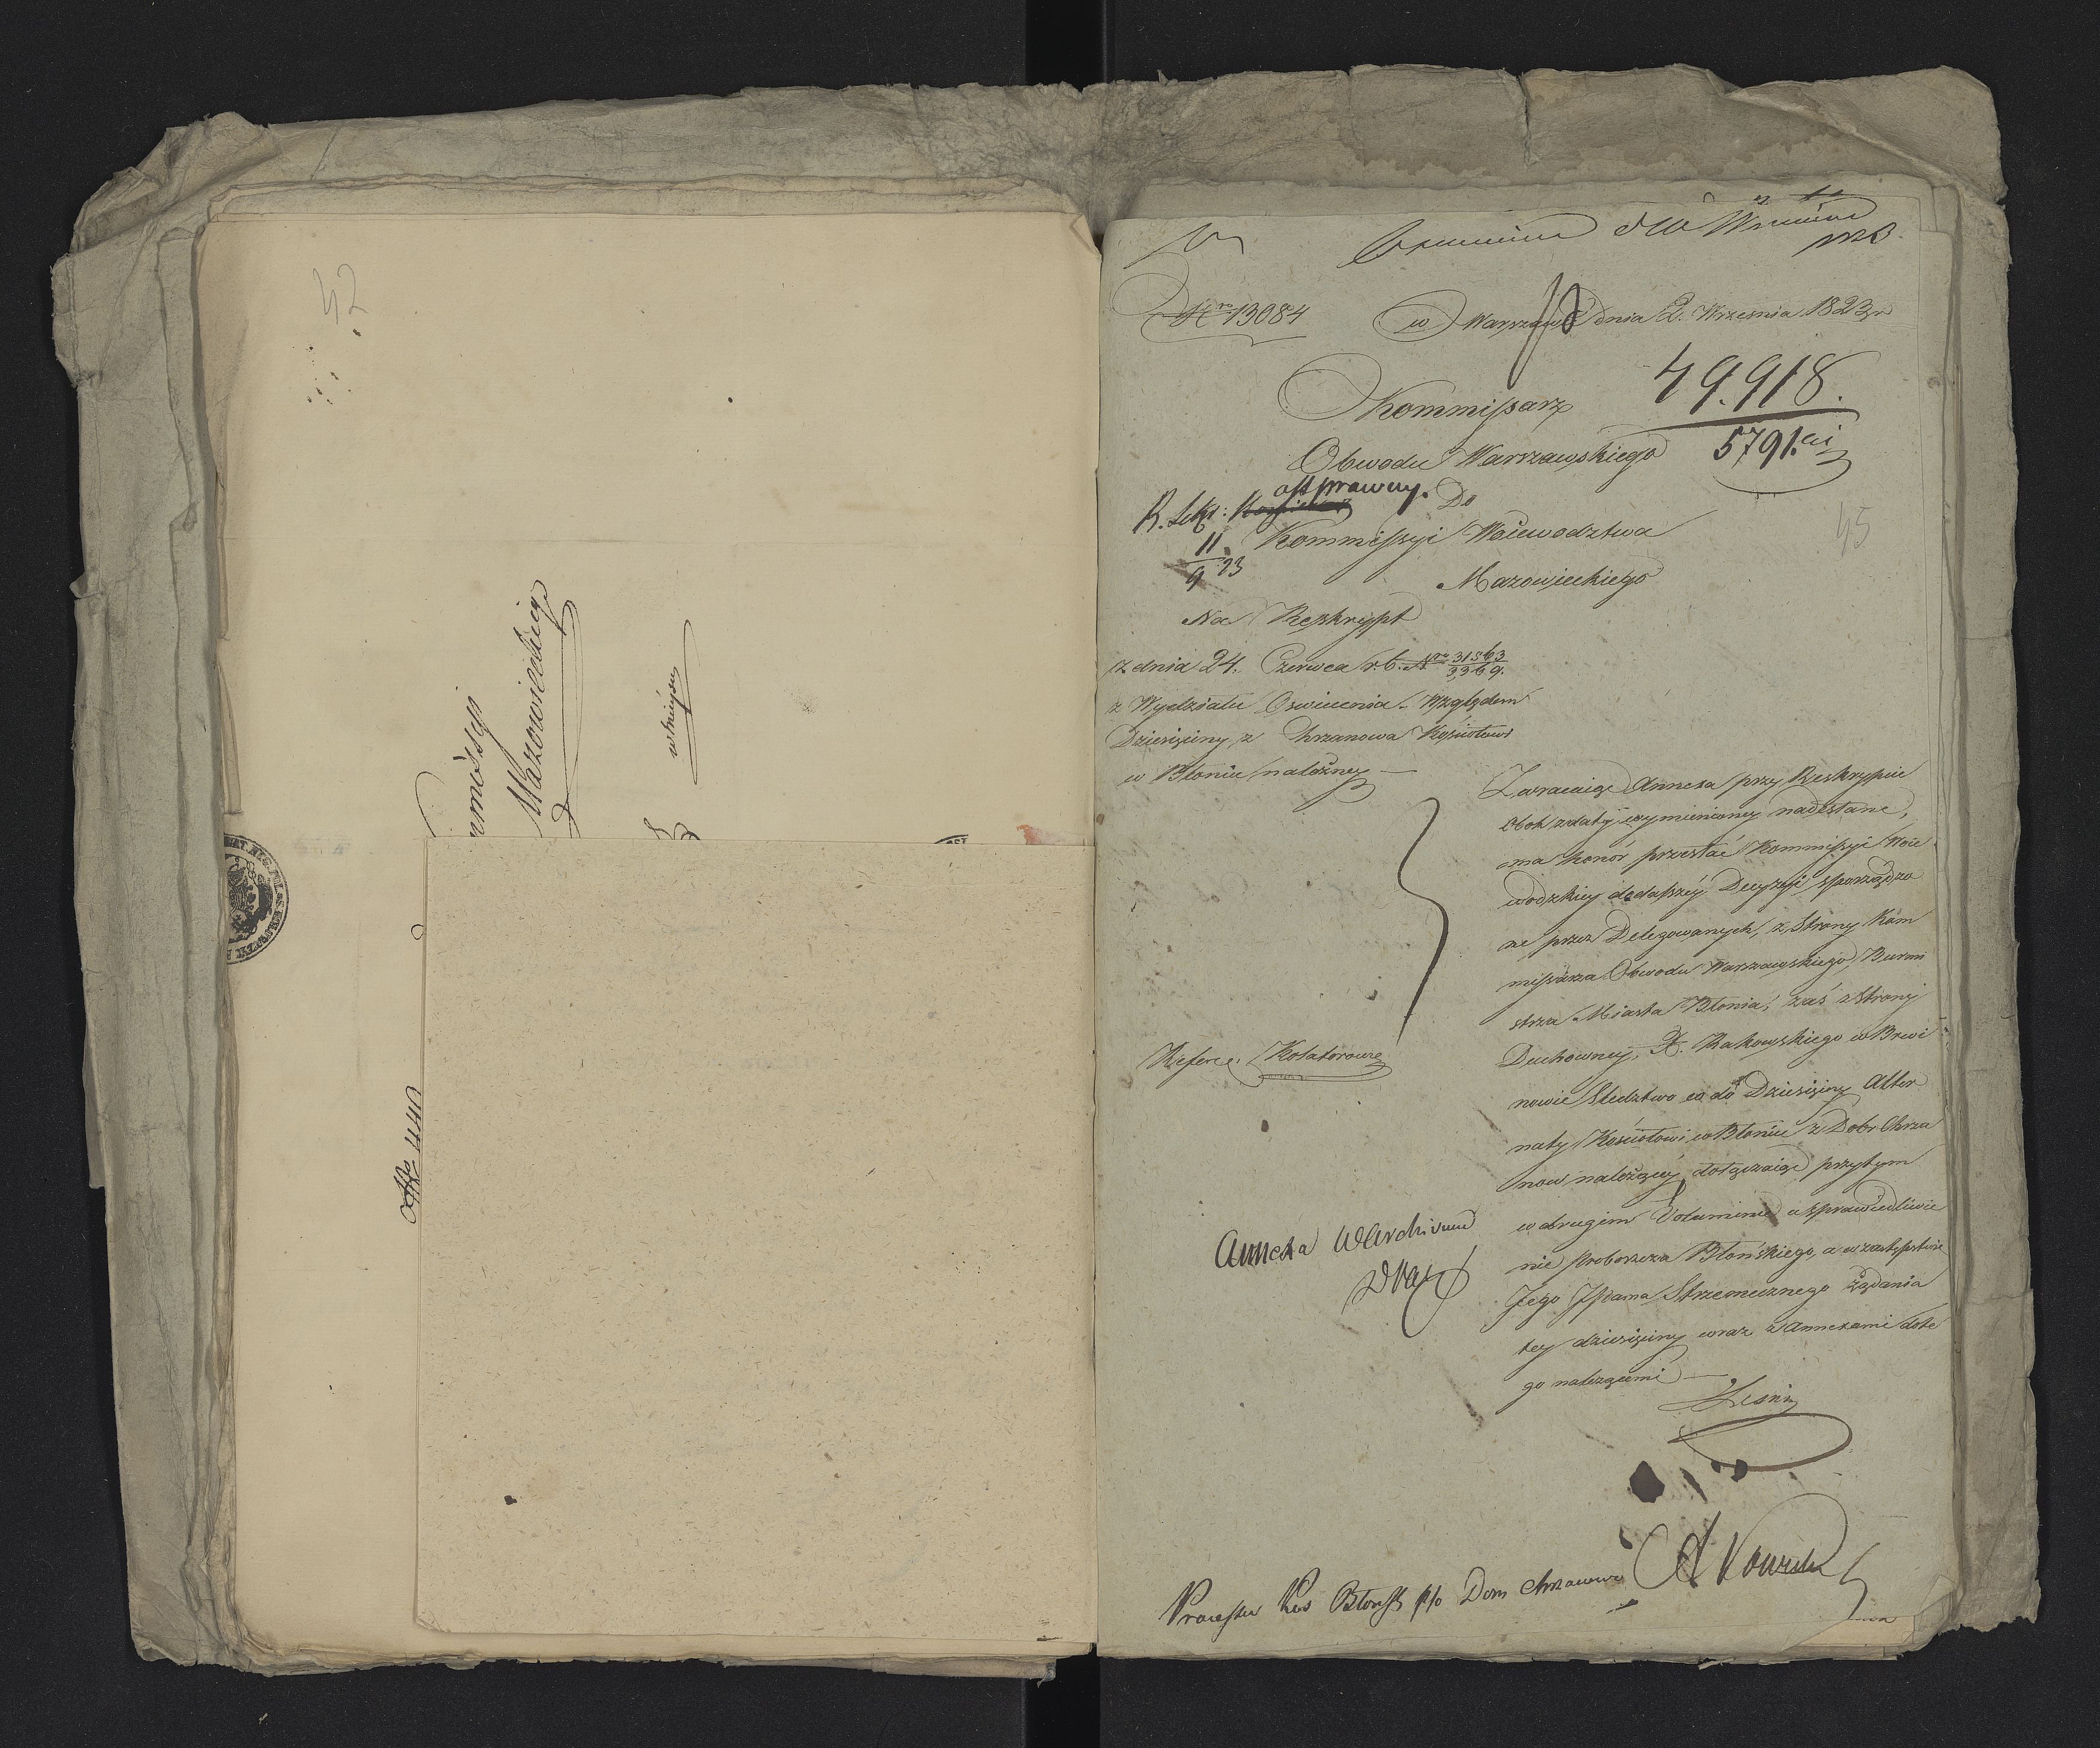 42
Mazowieckiego
w mieyscu
440
Nro 13084
w Warszawie dnia 2. Września 1823 r
49.918.
5791.
Kommissarz
Obwodu Warszawskiego
Do
Kommissyi Woiewodztwa
11
9 23
Mazowieckiego
45
Na Reskrypt
z dnia 24. Czerwca r.b. Nro 31563
3369.
z Wydziału Oswiecenia. Względem
Dziesięciny z Chrzanowa Kościołowi
w Błoniu należney —
Zwracaiąc Annexa przy Reskrypcie
obok z daty wymieniony nadesłane,
ma honor przesłać Kommissyi Woie
wodzkiey do dalszey Decyzyi sporządzo
ne przez Delegowanych, z Strony Kom
missarza Obwodu Warszawskiego, Burmi
strza Miasta Błonia, zaś z Strony
Duchowney, X. Rakowskiego w Brwi
nowie Sledztwo co do Dziesięciny Alter
naty Kościołowi w Błoniu z Dobr Chrza
now należącey, dołączaiąc przytym
w drugim Voluminie usprawiedliwie
nie Proboszcza Błońskiego, a w zastępstwie
Jego JPana Strzemecznego żądania
tey dziesięciny wraz z Annexami do te
go należącemi —
Refere: Kolatorowie
Annexa w Archivum
Kos Błons p/o Dom Chrzanowo